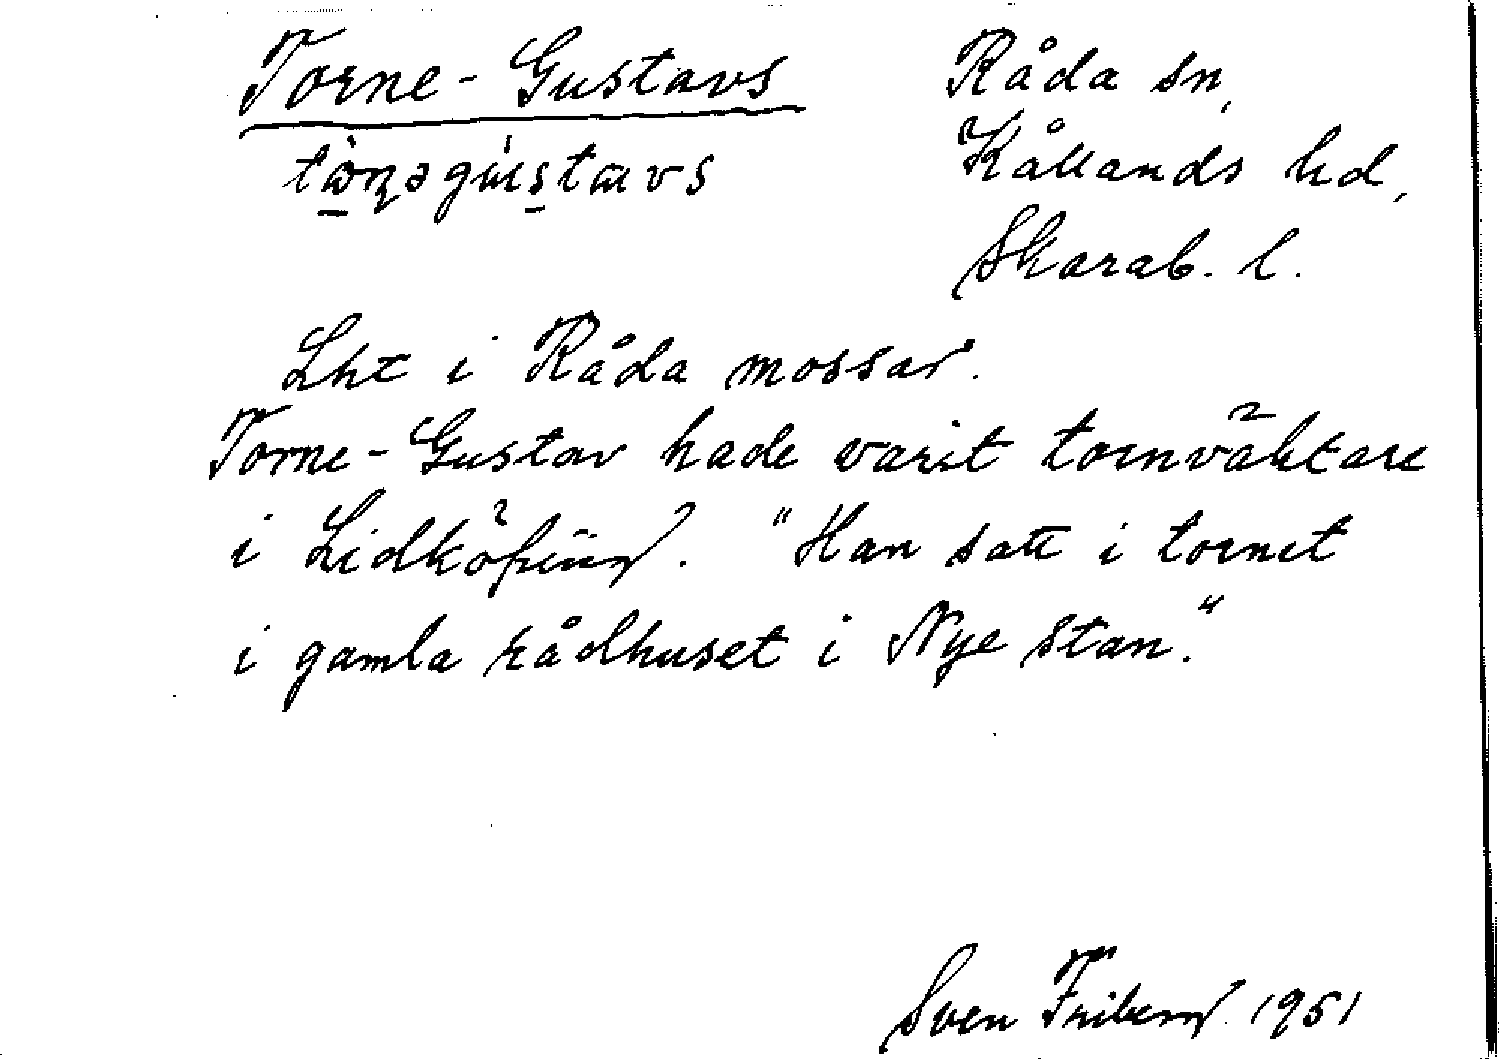 Torne-Gustavs
Råda sn,
Kållands hd,
Skarab. l.
Lht i Råda mossar.
Torne-Gustav hade varit tornväktare
i Lidköping. "Han satt i tornet
i gamla rådhuset i Nye stan."
Sven Friberg 1951